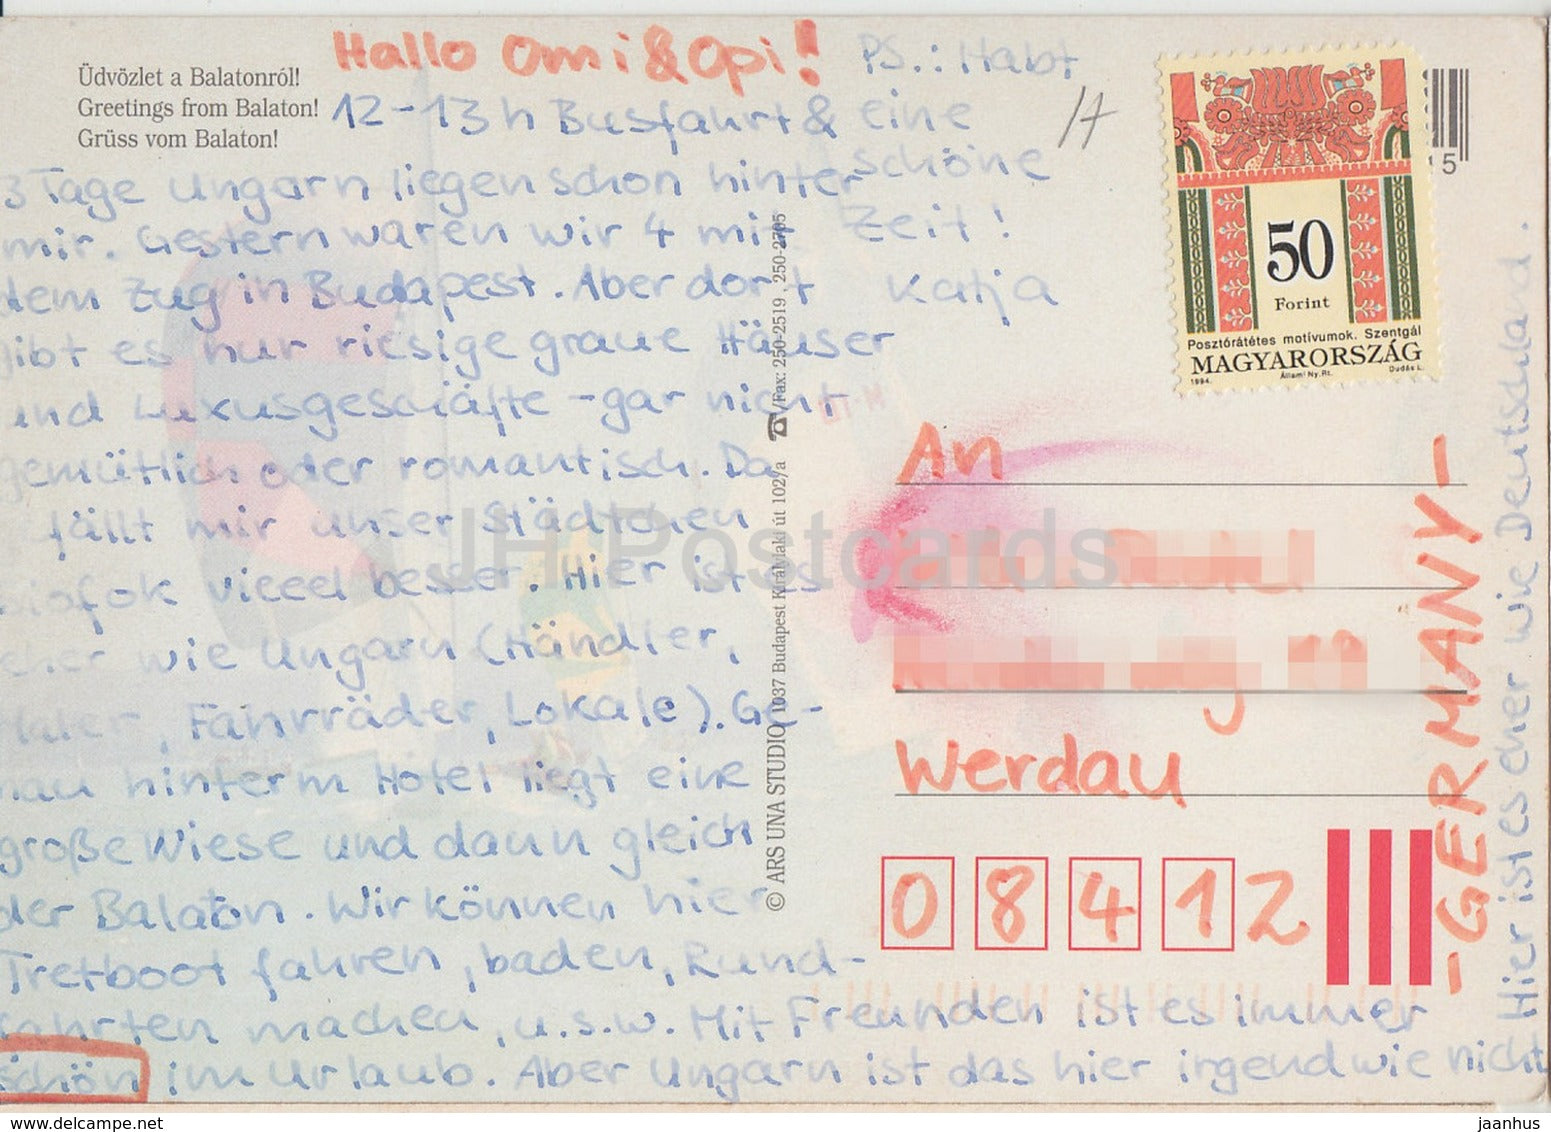 Üdvözlet a Balatonról!
Greetings from Balaton!
Grüss vom Balaton!
Hallo Omi & Opi!
12-13h Busfahrt &
3 Tage Ungarn liegen schon hinter
mir. Gestern waren wir 4 mit
dem Zug in Budapest. Aber dort
gibt es nur riesige graue Häuser
und Luxusgeschäfte - gar nicht
gemütlich oder romantisch. Da
fällt mir unser Städtchen
Siofok vieeel besser. Hier ist es
eher wie Ungarn (Händler,
Maler, Fahrräder, Lokale). Ge-
nau hinterm Hotel liegt eine
große Wiese und dann gleich
der Balaton. Wir können hier
Tretboot fahren, baden, Rund-
fahrten machen, u.s.w. Mit Freunden ist es immer
schön im Urlaub. Aber Ungarn ist das hier irgendwie nicht
Hier ist es eher wie Deutschland.
PS.: Habt
eine
schöne
Zeit!
Katja
17
50
Forint
Posztórátétes motívumok. Szentgál
MAGYARORSZÁG
1994. Állami Ny. Rt. Dudás L.
15
© ARS UNA STUDIO, 1037 Budapest Királylaki út 102/a ☎/Fax: 250-2519, 250-2705
An
Werdau
08412
-GERMANY-
JH Postcards
www.delcampe.net
jaanhus